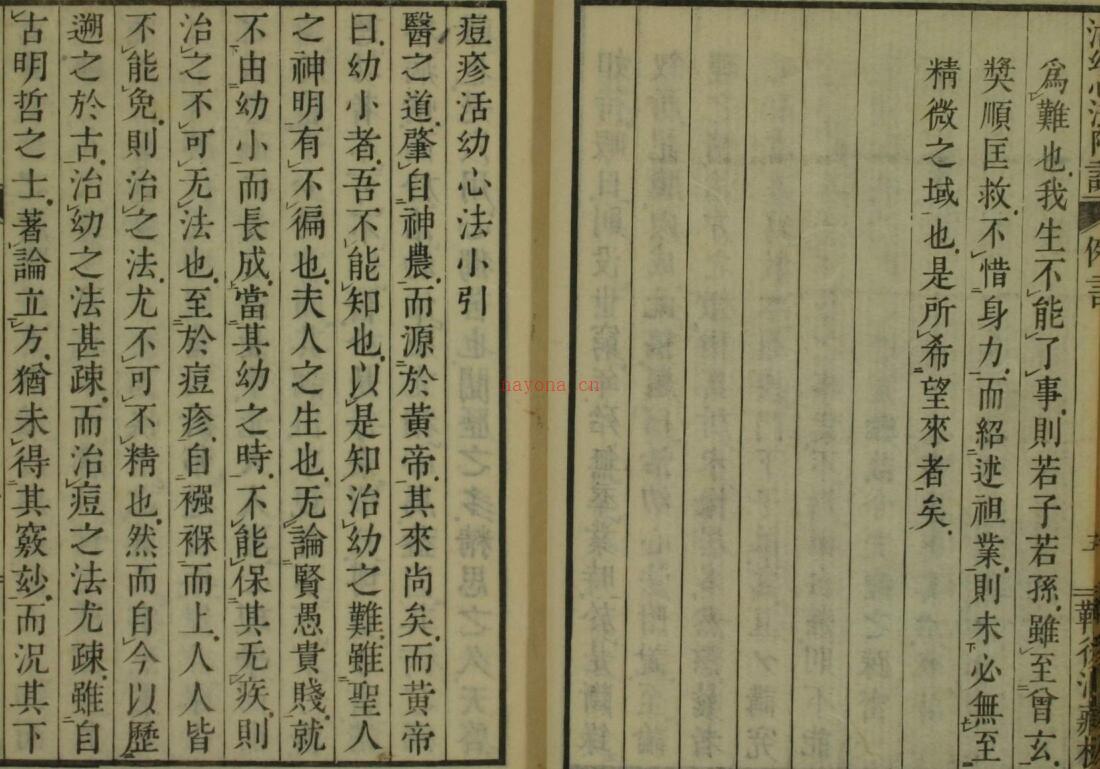 為難也我生不能了事則若子若孫雖至曾玄
獎順匡救不惜身力而紹述祖業則未必無至
精微之域也是所希望來者矣
痘疹活幼心法小引
醫之道肇自神農而源於黃帝其來尚矣而黃帝
曰幼小者吾不能知也以是知治幼之難雖聖人
之神明有不徧也夫人之生也无論賢愚貴賤就
不由幼小而長成當其幼之時不能保其无疾則
治之不可无法也至於痘疹自襁褓而上人人皆
不能免則治之法尤不可不精也然而自今以歷
遡之於古治幼之法甚疎而治痘之法尤疎雖自
古明哲之士著論立方猶未得其竅妙而況其下
nayona.cn